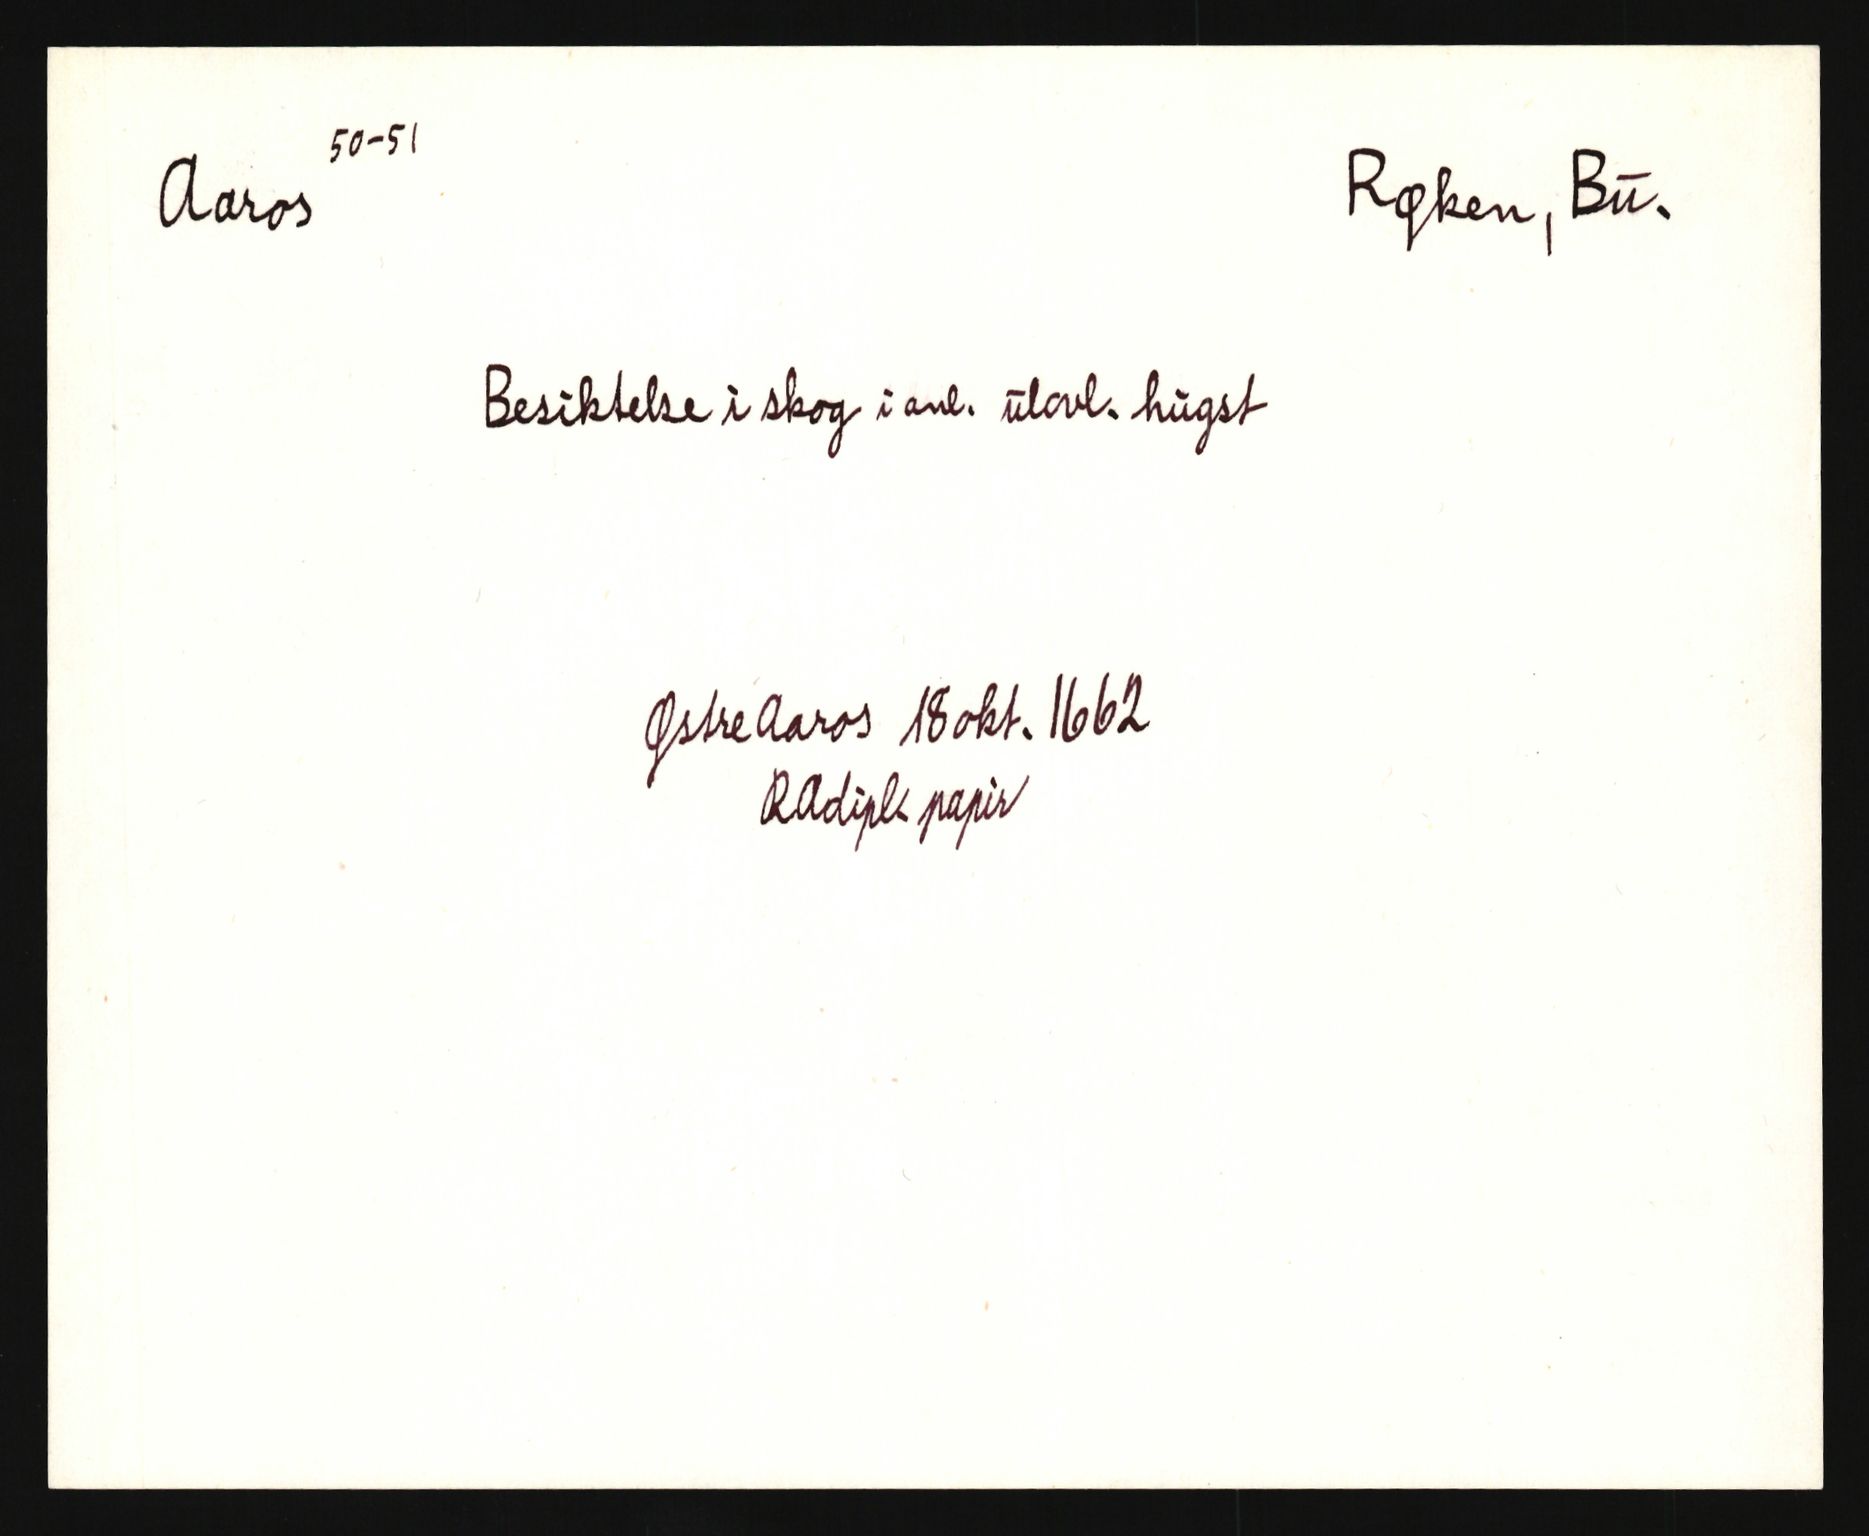 Aaros 50-51
Røken, Bu.
Besiktelse i skog i anl. ulovl. hugst
Østre Aaros 18 okt. 1662
RA dipl. papir